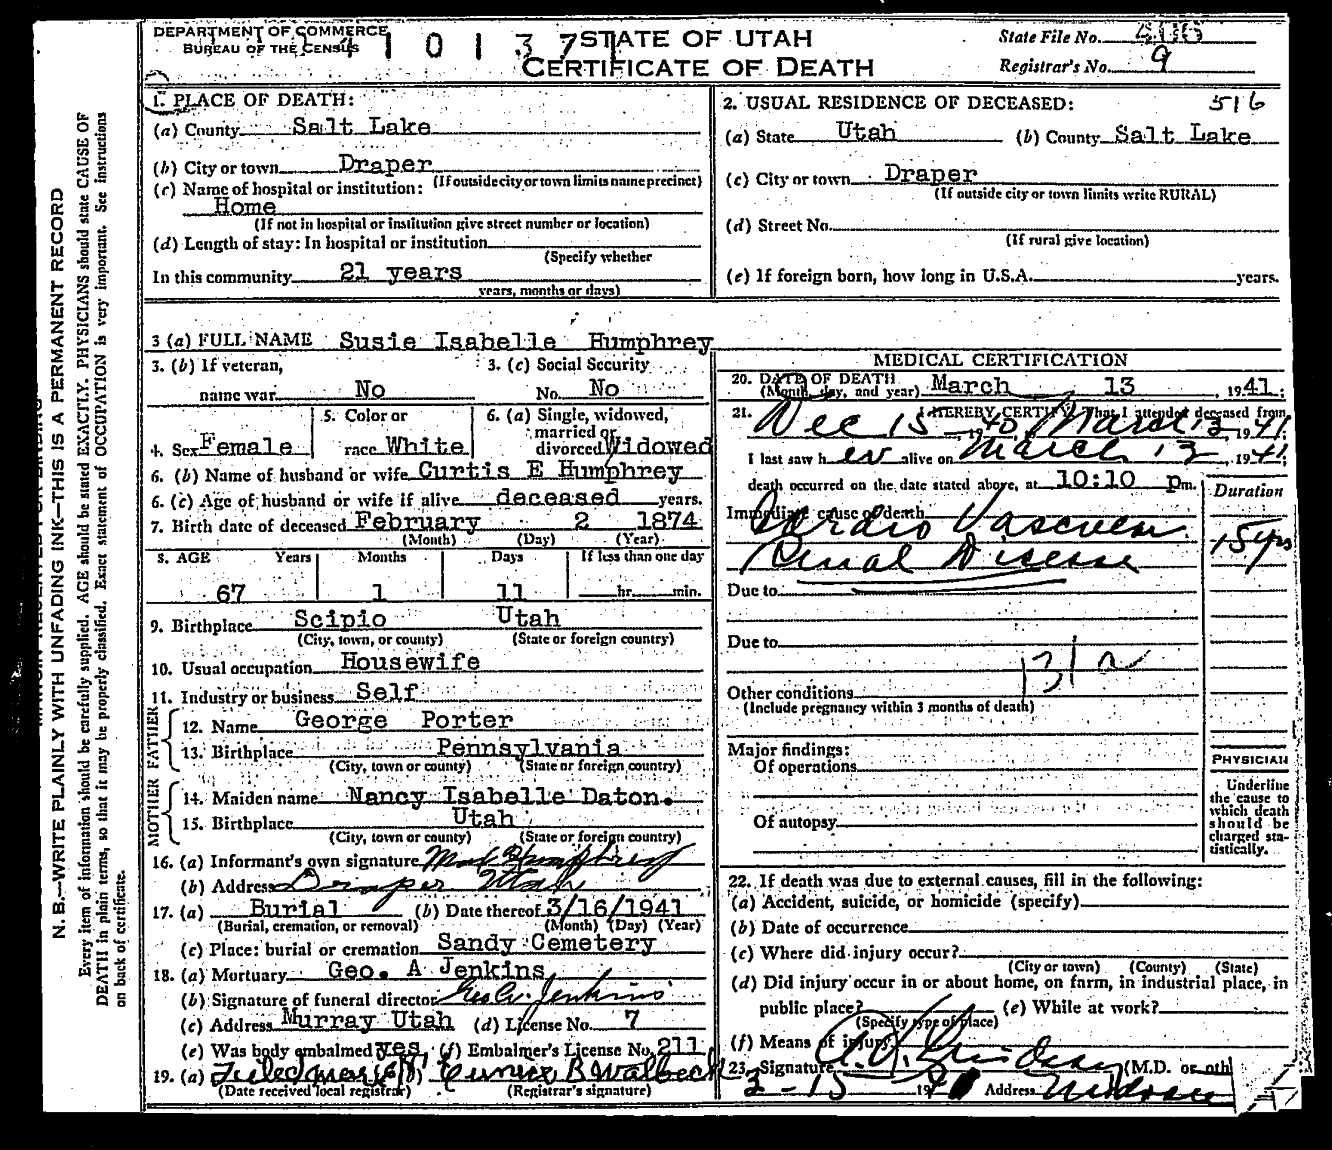 DEPARTMENT OF COMMERCE
BUREAU OF THE CENSUS
4 1 0 1 3 7 1
STATE OF UTAH
CERTIFICATE OF DEATH
State File No.
Registrar's No. 9
1. PLACE OF DEATH:
(a) County Salt Lake
(b) City or town Draper
(If outside city or town limits name precinct)
(c) Name of hospital or institution:
Home
(If not in hospital or institution give street number or location)
(d) Length of stay: In hospital or institution
(Specify whether
In this community 21 years
years, months or days)
2. USUAL RESIDENCE OF DECEASED: 516
(a) State Utah (b) County Salt Lake
(c) City or town Draper
(If outside city or town limits write RURAL)
(d) Street No.
(If rural give location)
(e) If foreign born, how long in U.S.A. years.
3 (a) FULL NAME Susie Isabelle Humphrey
3. (b) If veteran, 3. (c) Social Security
name war No No. No
4. Sex Female 5. Color or race White 6. (a) Single, widowed, married or divorced Widowed
6. (b) Name of husband or wife Curtis E Humphrey
6. (c) Age of husband or wife if alive deceased years.
7. Birth date of deceased February 2 1874
(Month) (Day) (Year)
8. AGE Years Months Days If less than one day
67 1 11 hr. min.
9. Birthplace Scipio Utah
(City, town, or county) (State or foreign country)
10. Usual occupation Housewife
11. Industry or business Self
FATHER
12. Name George Porter
13. Birthplace Pennsylvania
(City, town or county) (State or foreign country)
MOTHER
14. Maiden name Nancy Isabelle Daton.
15. Birthplace Utah
(City, town or county) (State or foreign country)
16. (a) Informant's own signature Humphrey
(b) Address Draper Utah
17. (a) Burial (b) Date thereof 3/16/1941
(Burial, cremation, or removal) (Month) (Day) (Year)
(c) Place: burial or cremation Sandy Cemetery
18. (a) Mortuary Geo. A Jenkins
(b) Signature of funeral director Jenkins
(c) Address Murray Utah (d) License No. 7
(e) Was body embalmed yes (f) Embalmer's License No. 211
19. (a) Filed (b) Eunice B Walbeck
(Date received local registrar) (Registrar's signature)
MEDICAL CERTIFICATION
20. DATE OF DEATH
(Month, day, and year) March 13, 1941;
21. I HEREBY CERTIFY, That I attended deceased from
Dec 15, 1940, March 13, 1941
I last saw her alive on March 13, 1941
death occurred on the date stated above, at 10:10 pm.
Duration
Immediate cause of death Cardio Vascular
Renal Disease
15 yrs
Due to
Due to
131a
Other conditions
(Include pregnancy within 3 months of death)
Major findings:
Of operations
Of autopsy
PHYSICIAN
Underline
the cause to
which death
should be
charged sta-
tistically.
22. If death was due to external causes, fill in the following:
(a) Accident, suicide, or homicide (specify)
(b) Date of occurrence
(c) Where did injury occur?
(City or town) (County) (State)
(d) Did injury occur in or about home, on farm, in industrial place, in
public place? (e) While at work?
(Specify type of place)
(f) Means of injury
23. Signature (M.D. or oth
3-15 1941 Address Midvale
N. B.—WRITE PLAINLY WITH UNFADING INK—THIS IS A PERMANENT RECORD
Every item of information should be carefully supplied. AGE should be stated EXACTLY. PHYSICIANS should state CAUSE OF
DEATH in plain terms, so that it may be properly classified. Exact statement of OCCUPATION is very important. See instructions
on back of certificate.